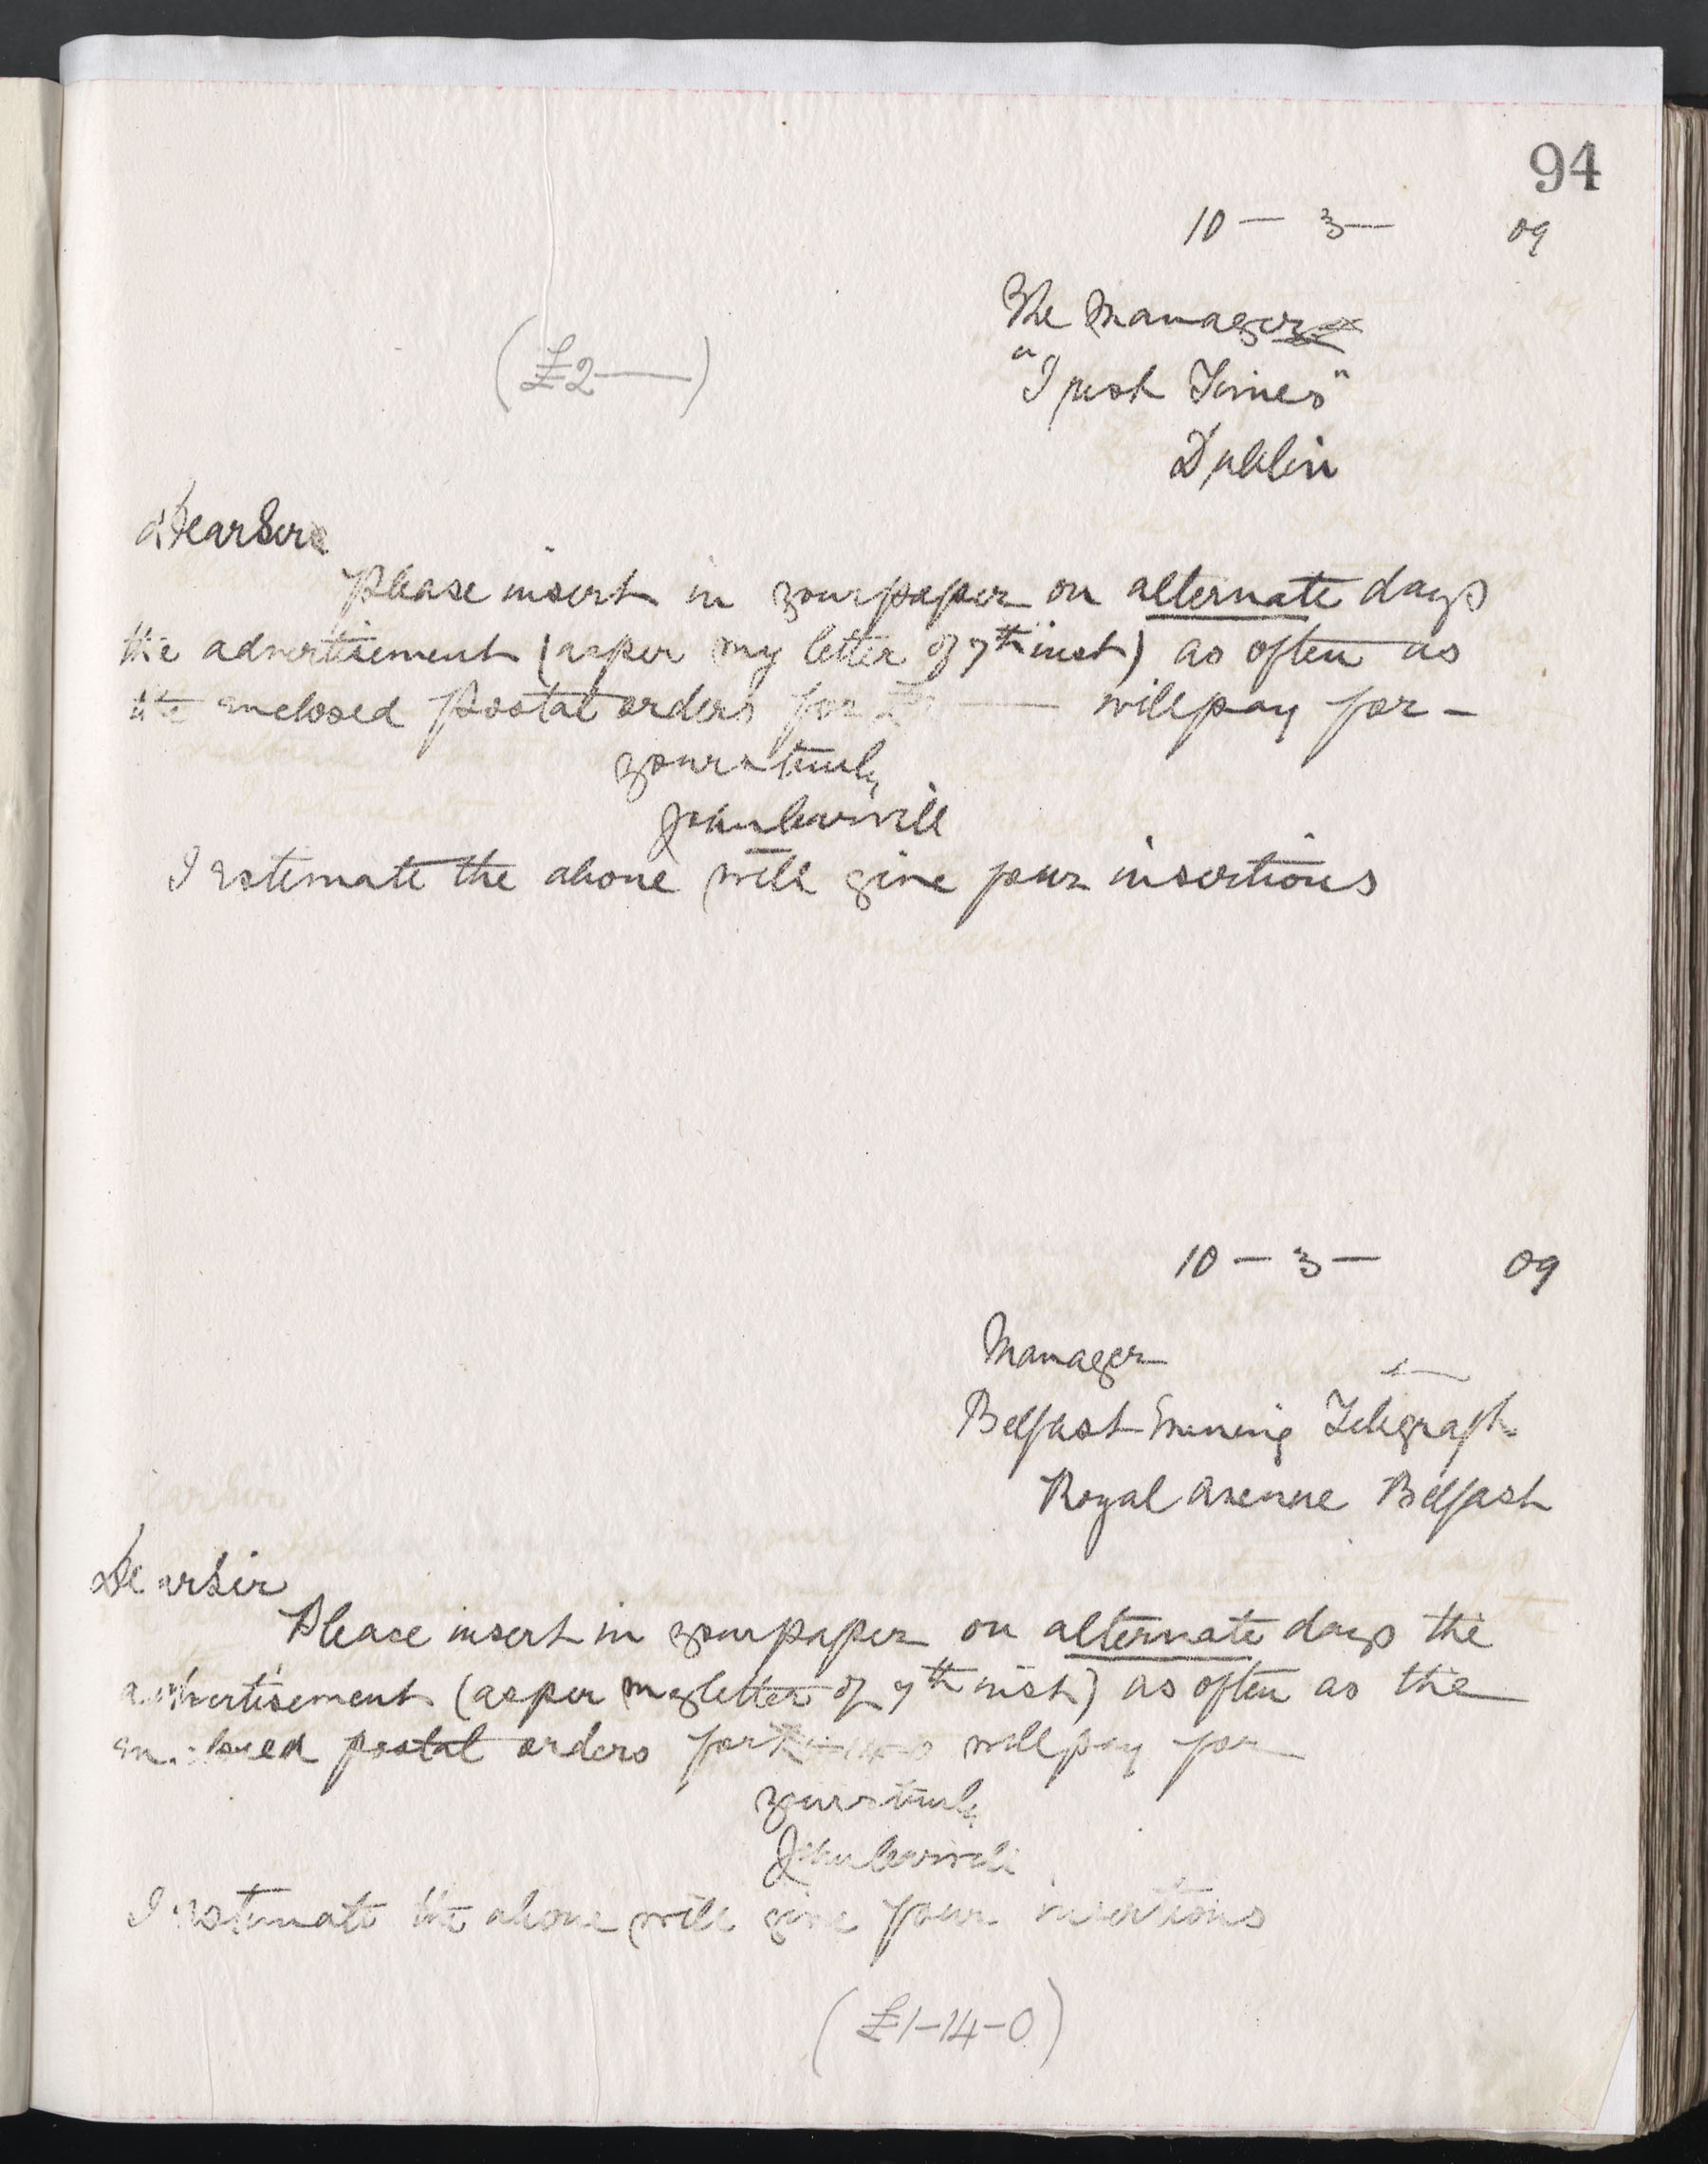 94
10 — 3 — 09
The Manager
(£2 ——)
"Irish Times"
Dublin
Dear Sir
Please insert in your paper on alternate days
the advertisement (as per my letter of 7th inst) as often as
the enclosed postal orders for £2 —— will pay for —
yours truly
John
I estimate the above will give four insertions
10 — 3 — 09
Manager
Belfast Evening Telegraph
Royal Avenue Belfast
Dear Sir
Please insert in your paper on alternate days the
advertisement (as per my letter of 7th inst) as often as the
enclosed postal orders for £1-14-0 will pay for
yours truly
John
I estimate the above will give four insertions
(£1-14-0)